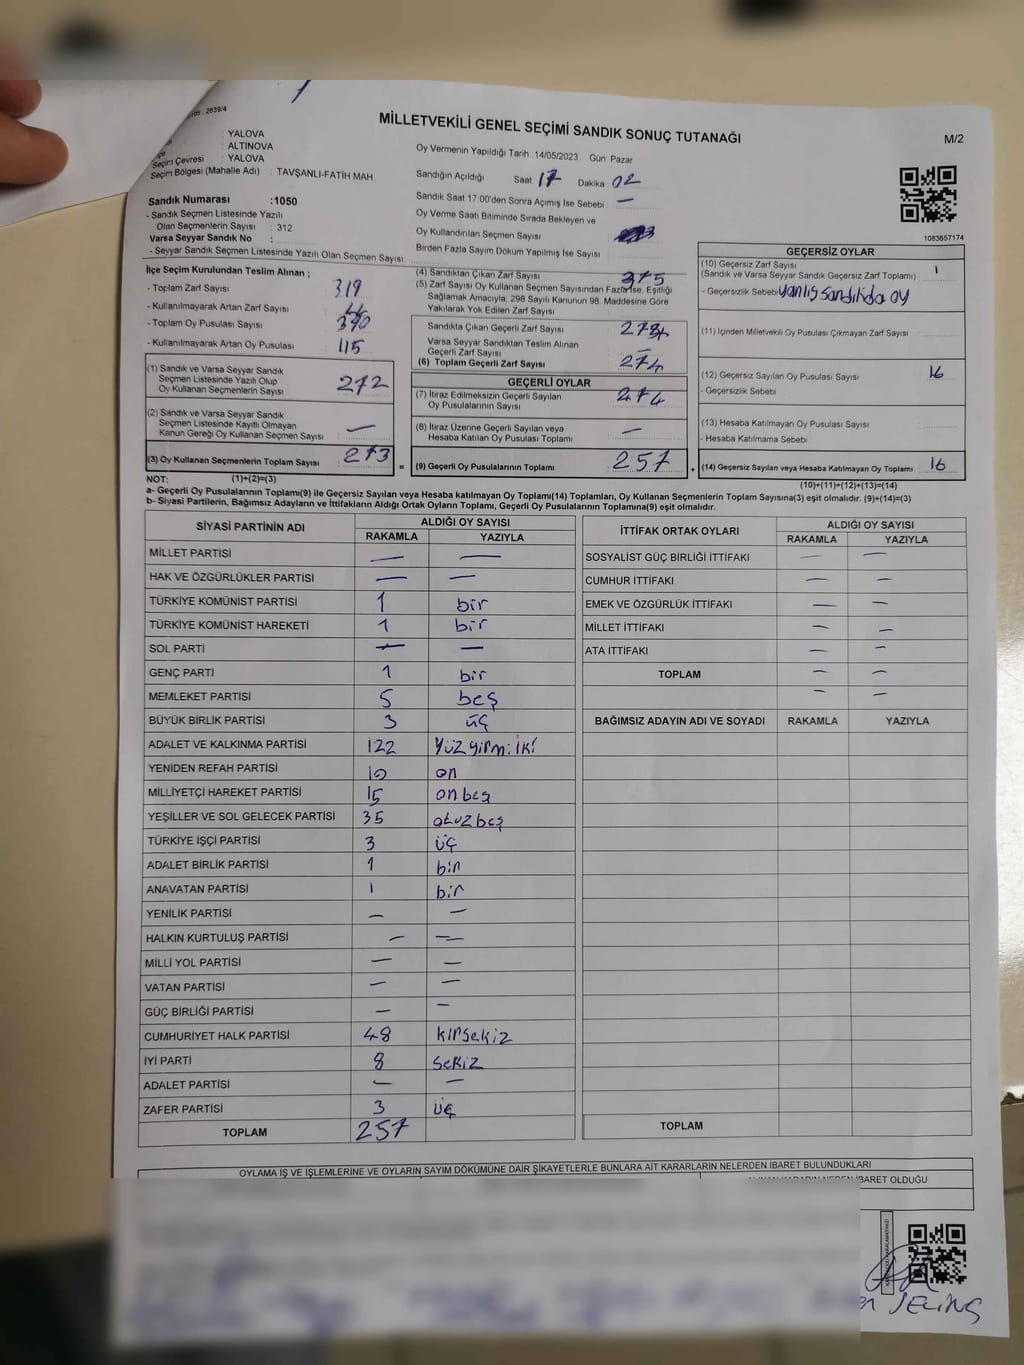 2839/4
MİLLETVEKİLİ GENEL SEÇİMİ SANDIK SONUÇ TUTANAĞI
M/2
YALOVA
ALTINOVA
Seçim Çevresi : YALOVA
Seçim Bölgesi (Mahalle Adı) : TAVŞANLI-FATİH MAH.
Oy Vermenin Yapıldığı Tarih 14/05/2023 Gün Pazar
Sandığın Açıldığı Saat: 17 Dakika 02
Sandık Saat 17.00'den Sonra Açımış İse Sebebi —
Oy Verme Saati Bitiminde Sırada Bekleyen ve
Oy Kullandırılan Seçmen Sayısı
Birden Fazla Sayım Döküm Yapılmış İse Sayısı
Sandık Numarası :1050
- Sandık Seçmen Listesinde Yazılı
Olan Seçmenlerin Sayısı : 312
Varsa Seyyar Sandık No :
- Seyyar Sandık Seçmen Listesinde Yazılı Olan Seçmen Sayısı
1083657174
İlçe Seçim Kurulundan Teslim Alınan ;
- Toplam Zarf Sayısı 319
- Kullanılmayarak Artan Zarf Sayısı
- Toplam Oy Pusulası Sayısı
- Kullanılmayarak Artan Oy Pusulası 115
(1) Sandık ve Varsa Seyyar Sandık
Seçmen Listesinde Yazılı Olup
Oy Kullanan Seçmenlerin Sayısı 272
(2) Sandık ve Varsa Seyyar Sandık
Seçmen Listesinde Kayıtlı Olmayan
Kanun Gereği Oy Kullanan Seçmen Sayısı —
(3) Oy Kullanan Seçmenlerin Toplam Sayısı 273
(4) Sandıktan Çıkan Zarf Sayısı
(5) Zarf Sayısı Oy Kullanan Seçmen Sayısından Fazla İse, Eşitliği
Sağlamak Amacıyla, 298 Sayılı Kanunun 98. Maddesine Göre
Yakılarak Yok Edilen Zarf Sayısı
Sandıkta Çıkan Geçerli Zarf Sayısı
Varsa Seyyar Sandıktan Teslim Alınan
Geçerli Zarf Sayısı —
(6) Toplam Geçerli Zarf Sayısı 274
GEÇERLİ OYLAR
(7) İtiraz Edilmeksizin Geçerli Sayılan
Oy Pusulalarının Sayısı 274
(8) İtiraz Üzerine Geçerli Sayılan veya
Hesaba Katılan Oy Pusulası Toplamı —
= (9) Geçerli Oy Pusulalarının Toplamı 257
GEÇERSİZ OYLAR
(10) Geçersiz Zarf Sayısı 1
(Sandık ve Varsa Seyyar Sandık Geçersiz Zarf Toplamı)
- Geçersizlik Sebebi yanlış sandıkda oy
(11) İçinden Milletvekili Oy Pusulası Çıkmayan Zarf Sayısı
(12) Geçersiz Sayılan Oy Pusulası Sayısı 16
- Geçersizlik Sebebi
(13) Hesaba Katılmayan Oy Pusulası Sayısı
- Hesaba Katılmama Sebebi
+ (14) Geçersiz Sayılan veya Hesaba Katılmayan Oy Toplamı 16
NOT: (1)+(2)=(3) (10)+(11)+(12)+(13)=(14)
a- Geçerli Oy Pusulalarının Toplamı(9) ile Geçersiz Sayılan veya Hesaba katılmayan Oy Toplamı(14) Toplamları, Oy Kullanan Seçmenlerin Toplam Sayısına(3) eşit olmalıdır. (9)+(14)=(3)
b- Siyasi Partilerin, Bağımsız Adayların ve İttifakların Aldığı Ortak Oyların Toplamı, Geçerli Oy Pusulalarının Toplamına(9) eşit olmalıdır.
SİYASİ PARTİNİN ADI ALDIĞI OY SAYISI
RAKAMLA YAZIYLA
MİLLET PARTİSİ — —
HAK VE ÖZGÜRLÜKLER PARTİSİ — —
TÜRKİYE KOMÜNİST PARTİSİ 1 bir
TÜRKİYE KOMÜNİST HAREKETİ 1 bir
SOL PARTİ — —
GENÇ PARTİ 1 bir
MEMLEKET PARTİSİ 5 beş
BÜYÜK BİRLİK PARTİSİ 3 üç
ADALET VE KALKINMA PARTİSİ 122 yüzyirmi iki
YENİDEN REFAH PARTİSİ 10 on
MİLLİYETÇİ HAREKET PARTİSİ 15 onbeş
YEŞİLLER VE SOL GELECEK PARTİSİ 35 otuzbeş
TÜRKİYE İŞÇİ PARTİSİ 3 üç
ADALET BİRLİK PARTİSİ 1 bir
ANAVATAN PARTİSİ 1 bir
YENİLİK PARTİSİ — —
HALKIN KURTULUŞ PARTİSİ — —
MİLLİ YOL PARTİSİ — —
VATAN PARTİSİ — —
GÜÇ BİRLİĞİ PARTİSİ — —
CUMHURİYET HALK PARTİSİ 48 kırsekiz
İYİ PARTİ 8 sekiz
ADALET PARTİSİ — —
ZAFER PARTİSİ 3 üç
TOPLAM 257
İTTİFAK ORTAK OYLARI ALDIĞI OY SAYISI
RAKAMLA YAZIYLA
SOSYALİST GÜÇ BİRLİĞİ İTTİFAKI — —
CUMHUR İTTİFAKI — —
EMEK VE ÖZGÜRLÜK İTTİFAKI — —
MİLLET İTTİFAKI — —
ATA İTTİFAKI — —
TOPLAM — —
— —
BAĞIMSIZ ADAYIN ADI VE SOYADI RAKAMLA YAZIYLA
TOPLAM
OYLAMA İŞ VE İŞLEMLERİNE VE OYLARIN SAYIM DÖKÜMÜNE DAİR ŞİKAYETLERLE BUNLARA AİT KARARLARIN NELERDEN İBARET BULUNDUKLARI
İBARET OLDUĞU